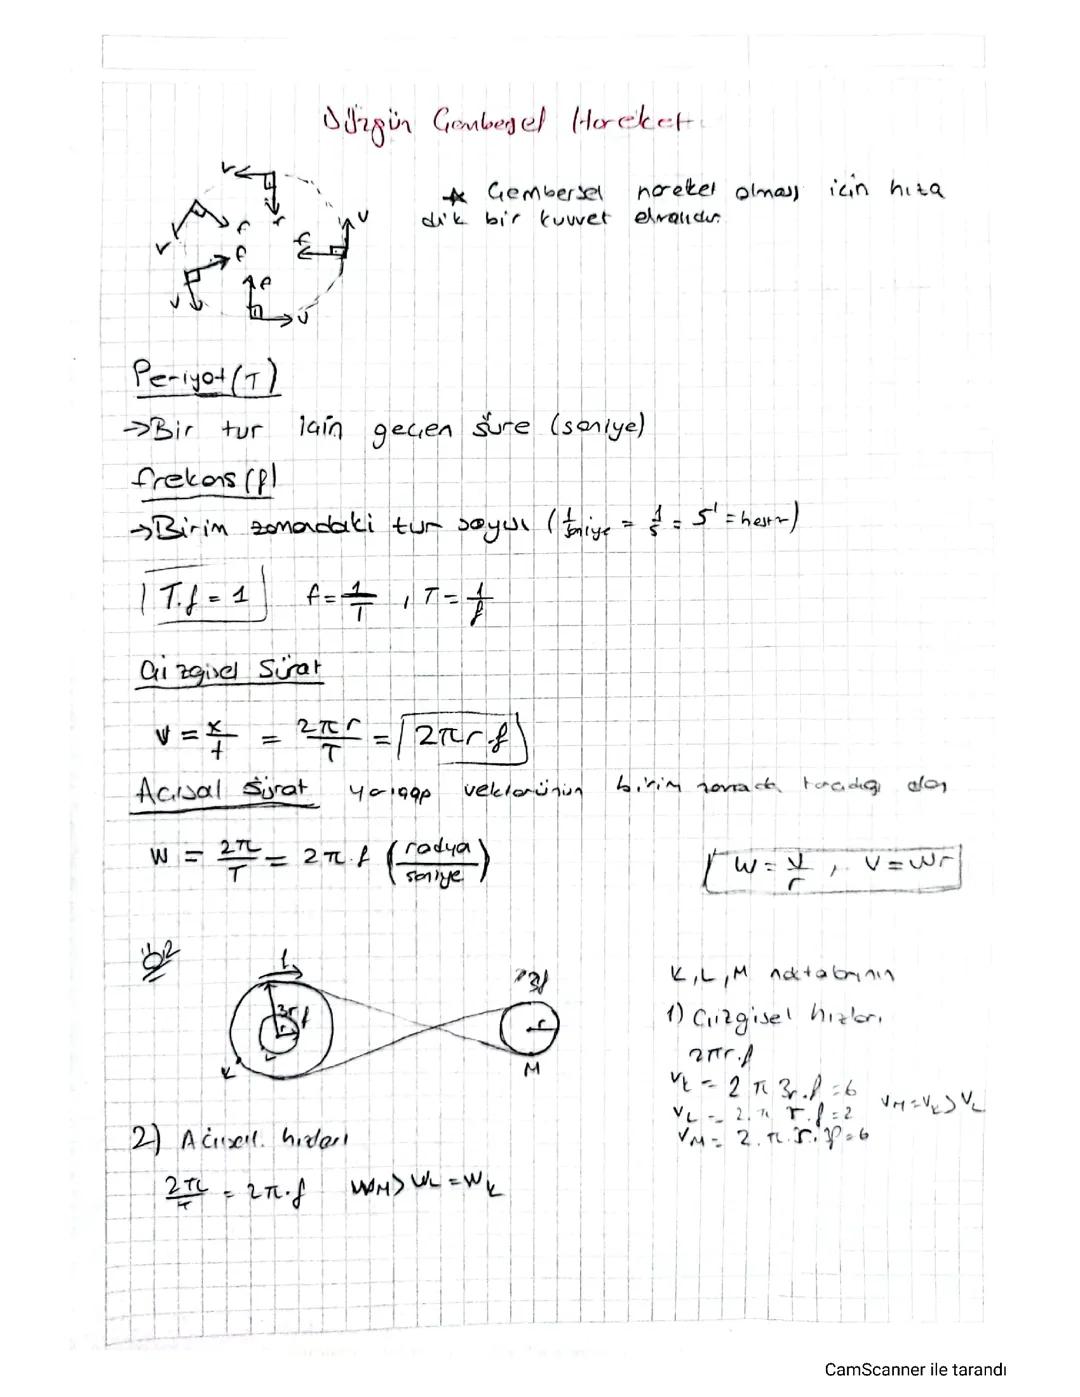 Düzgün Çembersel Hareket
* Çembersel hareket olması için hıza
dik bir kuvvet olmalıdır.
V
f
V
f
V
f
V
f
V
f
Periyot (T)
→Bir tur için geçen süre (saniye)
frekans (f)
→Birim zamandaki tur sayısı (1/saniye = 1/s = s⁻¹ = hertz)
T.f = 1 f = 1/T , T = 1/f
Çizgisel Sürat
V = x/t = 2πr/T = 2πr.f
Açısal Sürat yarıçap vektörünün birim zamanda taradığı
W = 2π/T = 2π.f (radyan/saniye)
W = V/r , V = Wr
f
3f
3r
f
r
r
K
L
M
K, L, M noktalarının
1) Çizgisel hızları
2πr.f
VK = 2 π 3r.f = 6
VL = 2.π r.f = 2
VM = 2.π.r.3f = 6
VM = VK > VL
2) Açısal hızları
2π/T = 2π.f WM > WL = WK
CamScanner ile tarandı